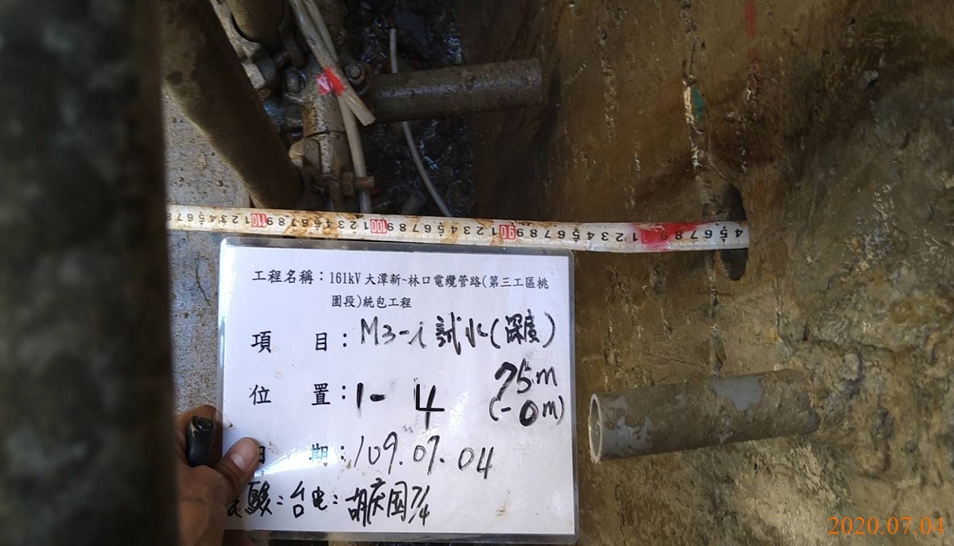 工程名稱：161kV 大潭新~林口電纜管路(第三工區桃
園段)統包工程
項 目：M3-i 試水(深度)
位 置：1- 4 75m
(-0m)
日 期：109.07.04
驗：台电：胡庆国7/4
2020.07.04